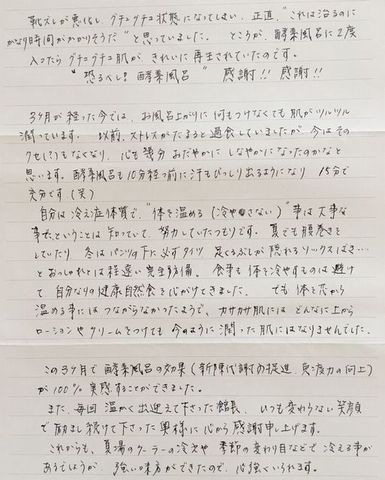 靴ズレが悪化し、グチュグチュ状態になってしまい、正直、"これは治るのに
かなり時間がかかりそうだ"と思っていました。ところが、酵素風呂に2度
入ったらグチュグチュ肌が きれいに再生されていたのです。
"恐るべし!! 酵素風呂" 感謝!! 感謝!!
3ヶ月が経った今では、お風呂上がりに何もつけなくても肌がツルツル
潤っています。以前、ストレスがたまると過食していましたが、今はその
クセ(?)もなくなり、心も幾分 おだやかに しなやかになったのかなと
思います。酵素風呂も10分経つ前に汗もびっしり出るようになり 15分で
充分です(笑)
自分は冷え症体質で、"体を温める(冷やさない)"事は大事な
事だということは知っていて、努力していたつもりです。夏でも腹巻きを
していたり、冬はパンツの下に必ずタイツ 足くるぶしが隠れるソックスはき…
とおしゃれとは程遠い完全防備。食事も体を冷やすものは避け
て、自分なりの健康自然食を心がけてきました。でも 体を芯から
温める事にはつながらなかったようで、カサカサ肌には どんなに上から
ローションやクリームをつけても 今のように潤った肌にはなりませんでした。
この3ヶ月で 酵素風呂の効果(新陳代謝の促進、免疫力の向上)
が100%実感することができました。
また、毎回 温かく出迎えて下さった館長、いつも変わらない笑顔
で励まし続けて下さった奥様に心から感謝申し上げます。
これからも、夏場のクーラーの冷えや 季節の変わり目などで 冷える事が
あるでしょうが、強い味方ができたので、心強くいられます。